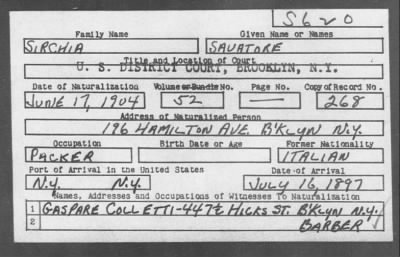 S620
Family Name Given Name or Names
SIRCHIA SALVATORE
Title and Location of Court
U. S. DISTRICT COURT, BROOKLYN, N.Y.
Date of Naturalization Volume or Bundle No. Page No. Copy of Record No.
JUNE 17, 1904 52 — 268
Address of Naturalized Person
196 HAMILTON AVE. B'KLYN N.Y.
Occupation Birth Date or Age Former Nationality
PACKER ITALIAN
Port of Arrival in the United States Date of Arrival
N.Y. N.Y. JULY 16, 1897
Names, Addresses and Occupations of Witnesses To Naturalization
1 GASPARE COLLETTI-447½ HICKS ST. B'KLYN N.Y.
2 BARBER